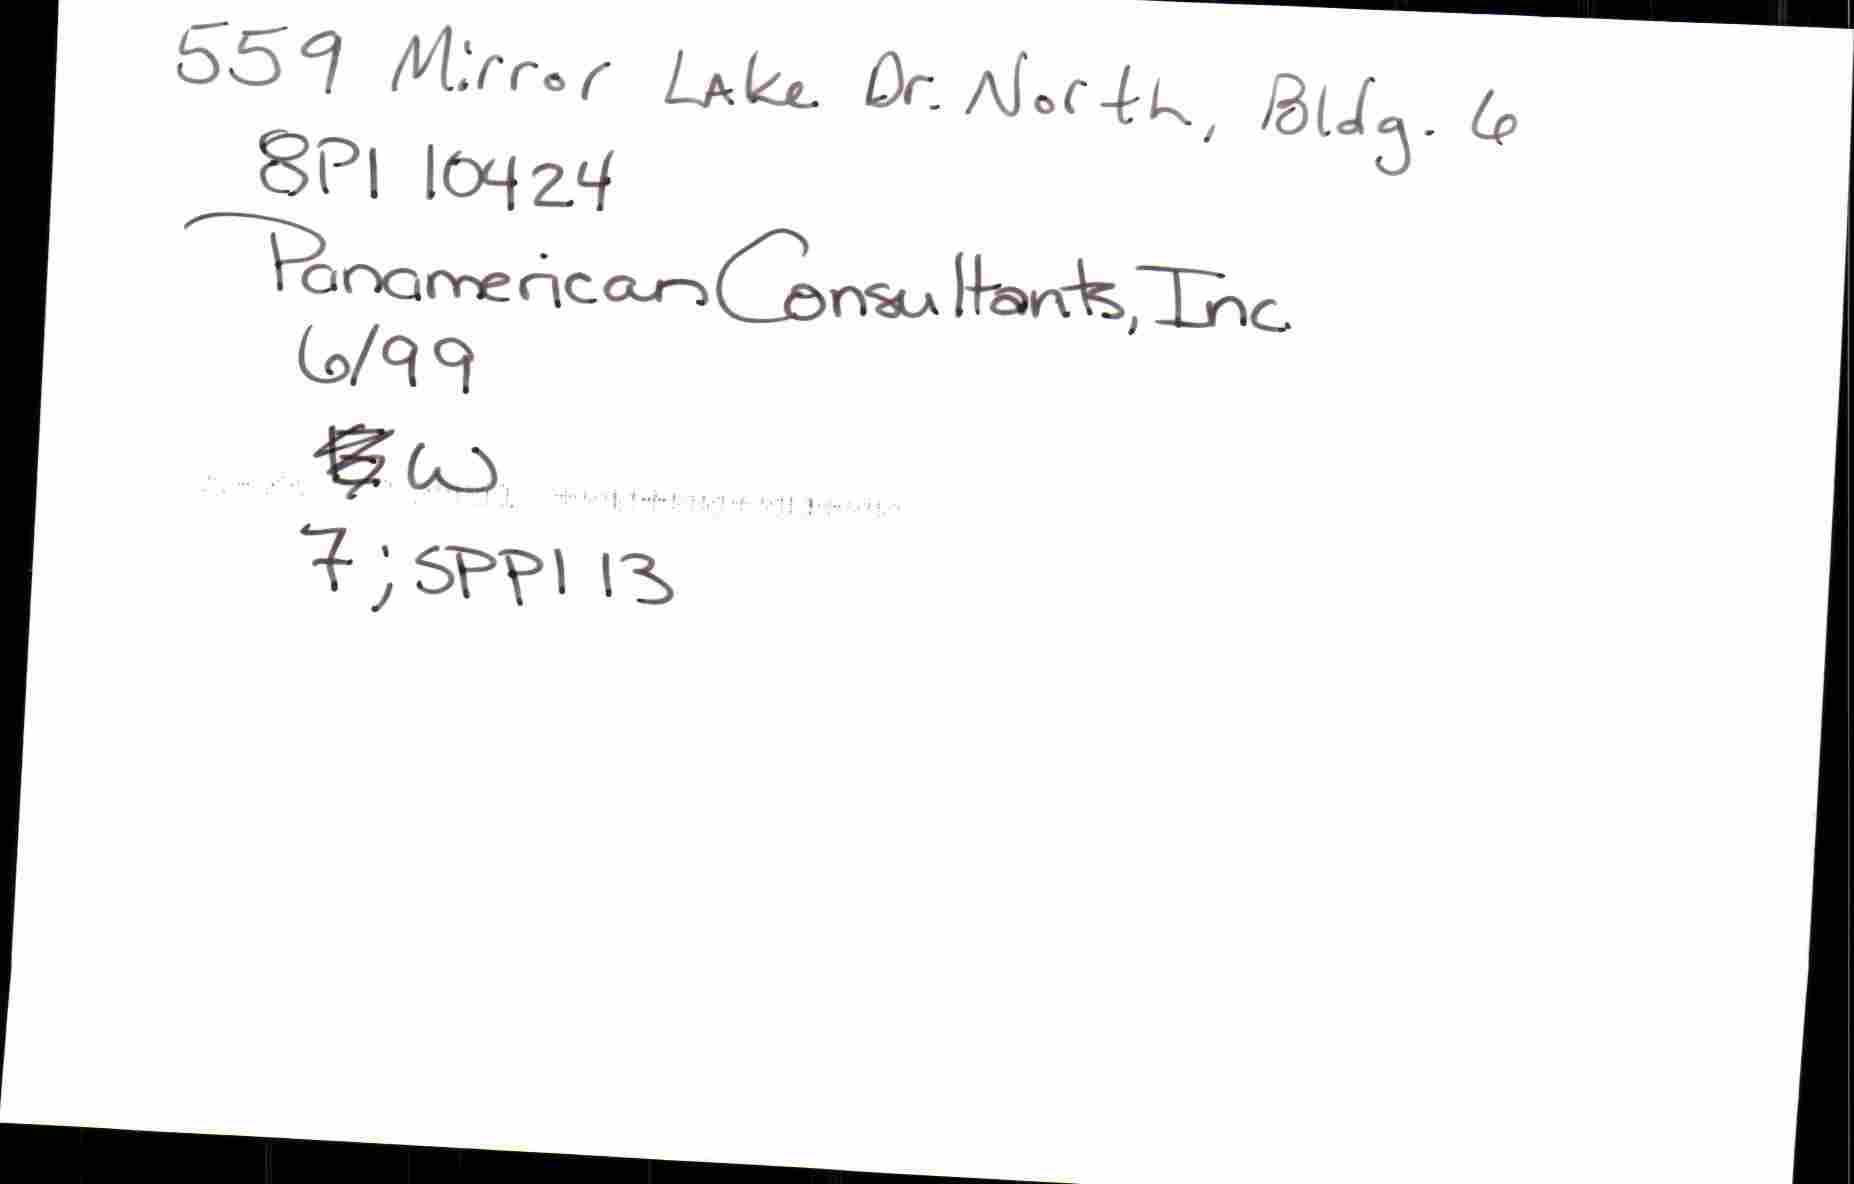 559 Mirror Lake Dr. North, Bldg. 6
8PI 10424
Panamerican Consultants, Inc.
6/99
W
7; SPPI 13